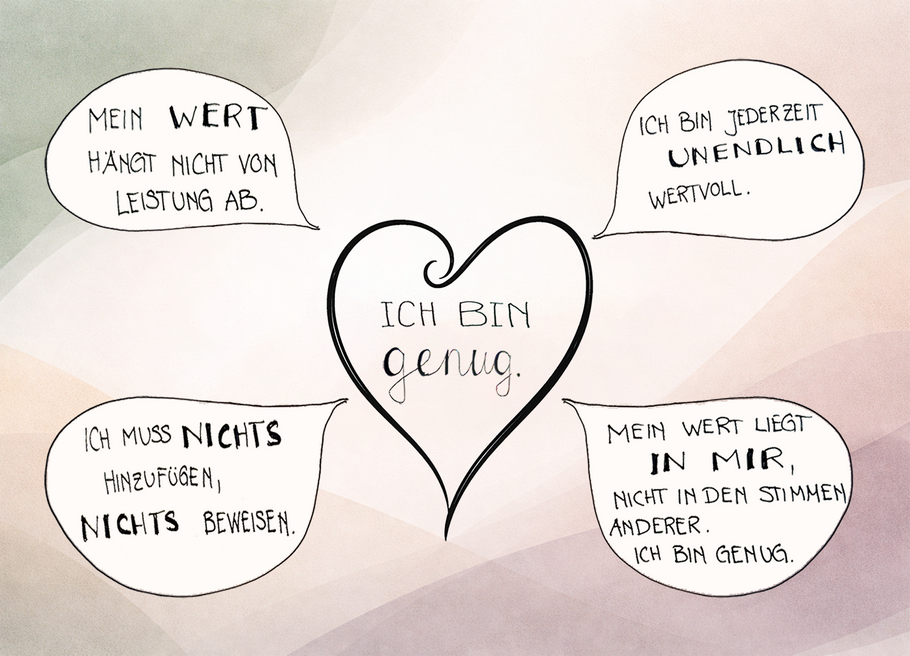 MEIN WERT
HÄNGT NICHT VON
LEISTUNG AB.
ICH BIN JEDERZEIT
UNENDLICH
WERTVOLL.
ICH BIN
genug.
ICH MUSS NICHTS
HINZUFÜGEN,
NICHTS BEWEISEN.
MEIN WERT LIEGT
IN MIR,
NICHT IN DEN STIMMEN
ANDERER.
ICH BIN GENUG.